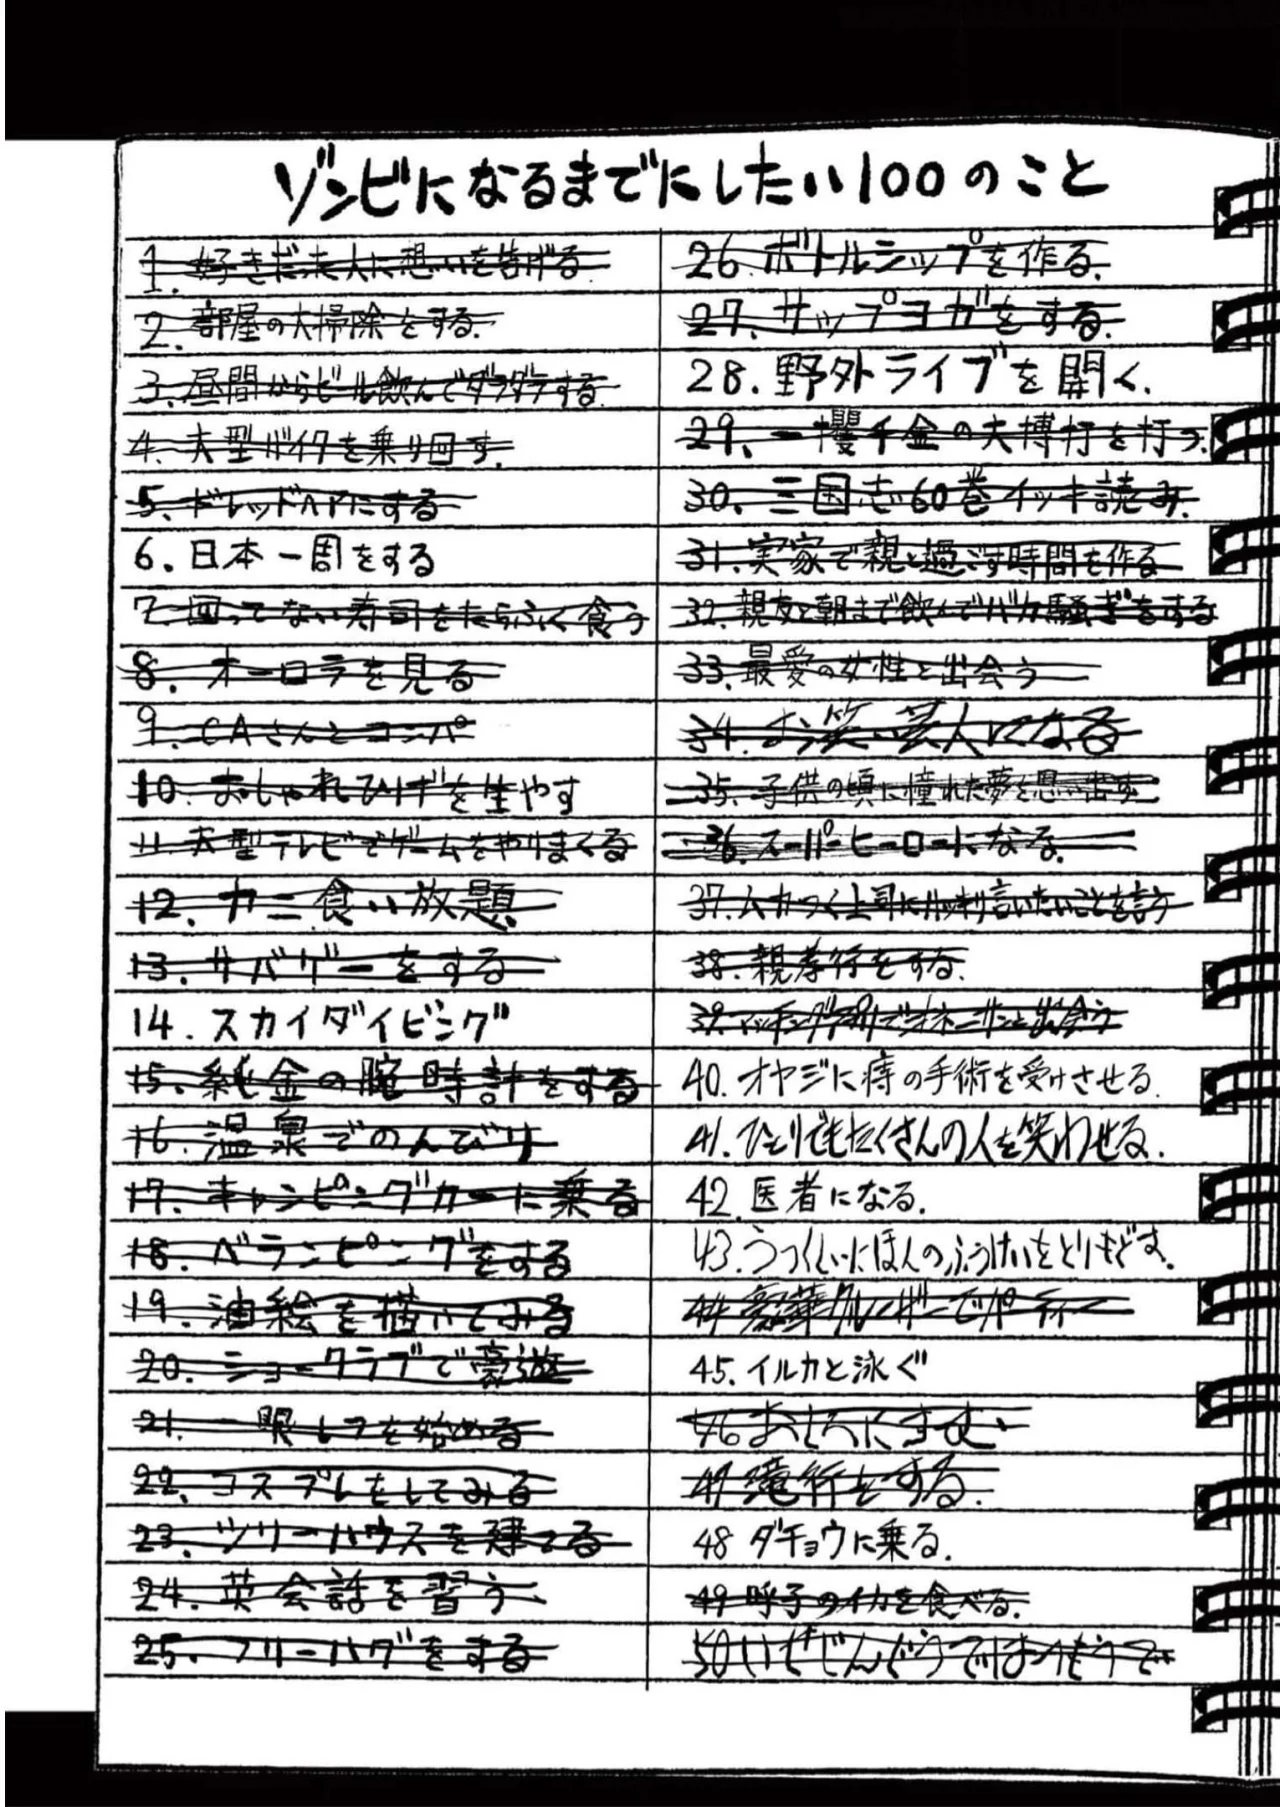 ゾンビになるまでにしたい100のこと
1. 好きだった人に想いを告げる
2. 部屋の大掃除をする.
3. 昼間からビール飲んでダラダラする
4. 大型バイクを乗り回す.
5. ドレッドヘアにする
6. 日本一周をする
7. 回ってない寿司をたらふく食う
8. オーロラを見る
9. CAさんとコンパ
10. おしゃれひげを生やす
11. 大型テレビでゲームをやりまくる
12. カニ食い放題
13. サバゲーをする
14. スカイダイビング
15. 純金の腕時計をする
16. 温泉でのんびり
17. キャンピングカーに乗る
18. ベランピングをする
19. 油絵を描いてみる
20. ショークラブで豪遊
21. 一眼レフを始める
22. コスプレをしてみる
23. ツリーハウスを建てる
24. 英会話を習う
25. フリーハグをする
26. ボトルシップを作る.
27. サップヨガをする.
28. 野外ライブを開く.
29. 一攫千金の大博打を打つ.
30. 三国志60巻イッキ読み.
31. 実家で親と過ごす時間を作る
32. 親友と朝まで飲んでバカ騒ぎをする
33. 最愛の女性と出会う
34. お笑い芸人になる
35. 子供の頃に憧れた夢を思い出す
36. スーパーヒーローになる.
37. ムカつく上司にハッキリ言いたいことを言う
38. 親孝行をする.
39. マッチングアプリでオネーサンと出会う
40. オヤジに痔の手術を受けさせる.
41. ひとりでもたくさんの人を笑わせる.
42. 医者になる.
43. うつくしいにほんのふうけいをとりもどす.
44 豪華クルーザーでパーティー
45. イルカと泳ぐ
46 おしろにすむ
47 滝行をする.
48 ダチョウに乗る.
49 呼子のイカを食べる.
50 いぜじんどうではつもうで